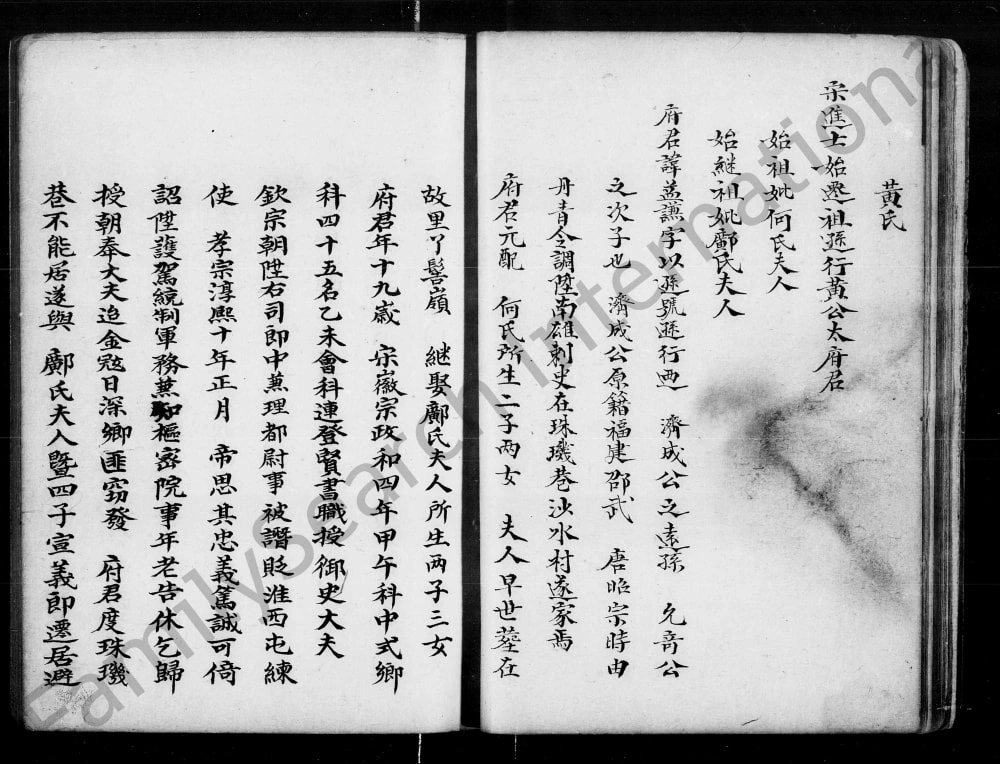 黃氏
宋進士始遷祖遜行黃公太府君
始祖妣何氏夫人
始継祖妣鄺氏夫人
府君諱益謙字以遜號遜行廼 濟成公之遠孫 允音公
之次子也 濟成公原籍福建邵武 唐昭宗時由
丹青令調陞南雄刺史在珠璣巷沙水村遂家焉
府君元配 何氏所生二子两女 夫人早世塟在
故里丫髻嶺 継娶鄺氏夫人所生两子三女
府君年十九歲 宋徽宗政和四年甲午科中式鄉
科四十五名乙未會科連登賢書職授御史大夫
欽宗朝陞右司郎中兼理都尉事被譖貶淮西屯練
使 孝宗淳熙十年正月 帝思其忠義篤誠可倚
詔陞護駕統制軍務兼知樞密院事年老告休乞歸
授朝奉大夫迨金冦日深鄉匪窃發 府君度珠璣
巷不能居遂與 鄺氏夫人暨四子宣義郎遷居避
FamilySearch International